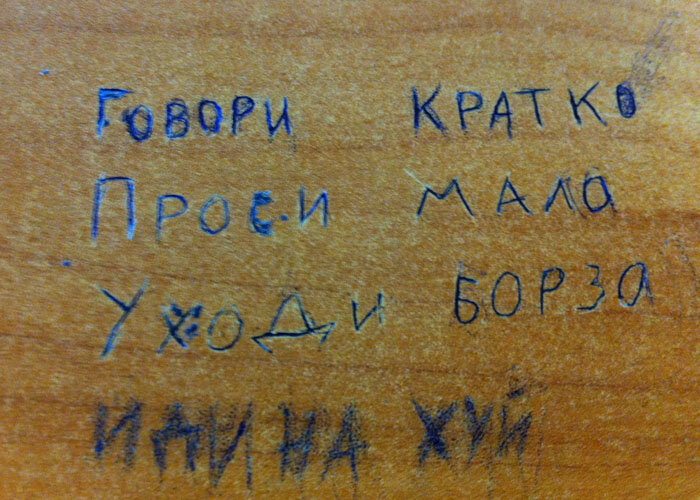 Говори КРАТКО
ПРОСИ МАЛА
Уходи БОРЗА
ИДИ НА ХУЙ